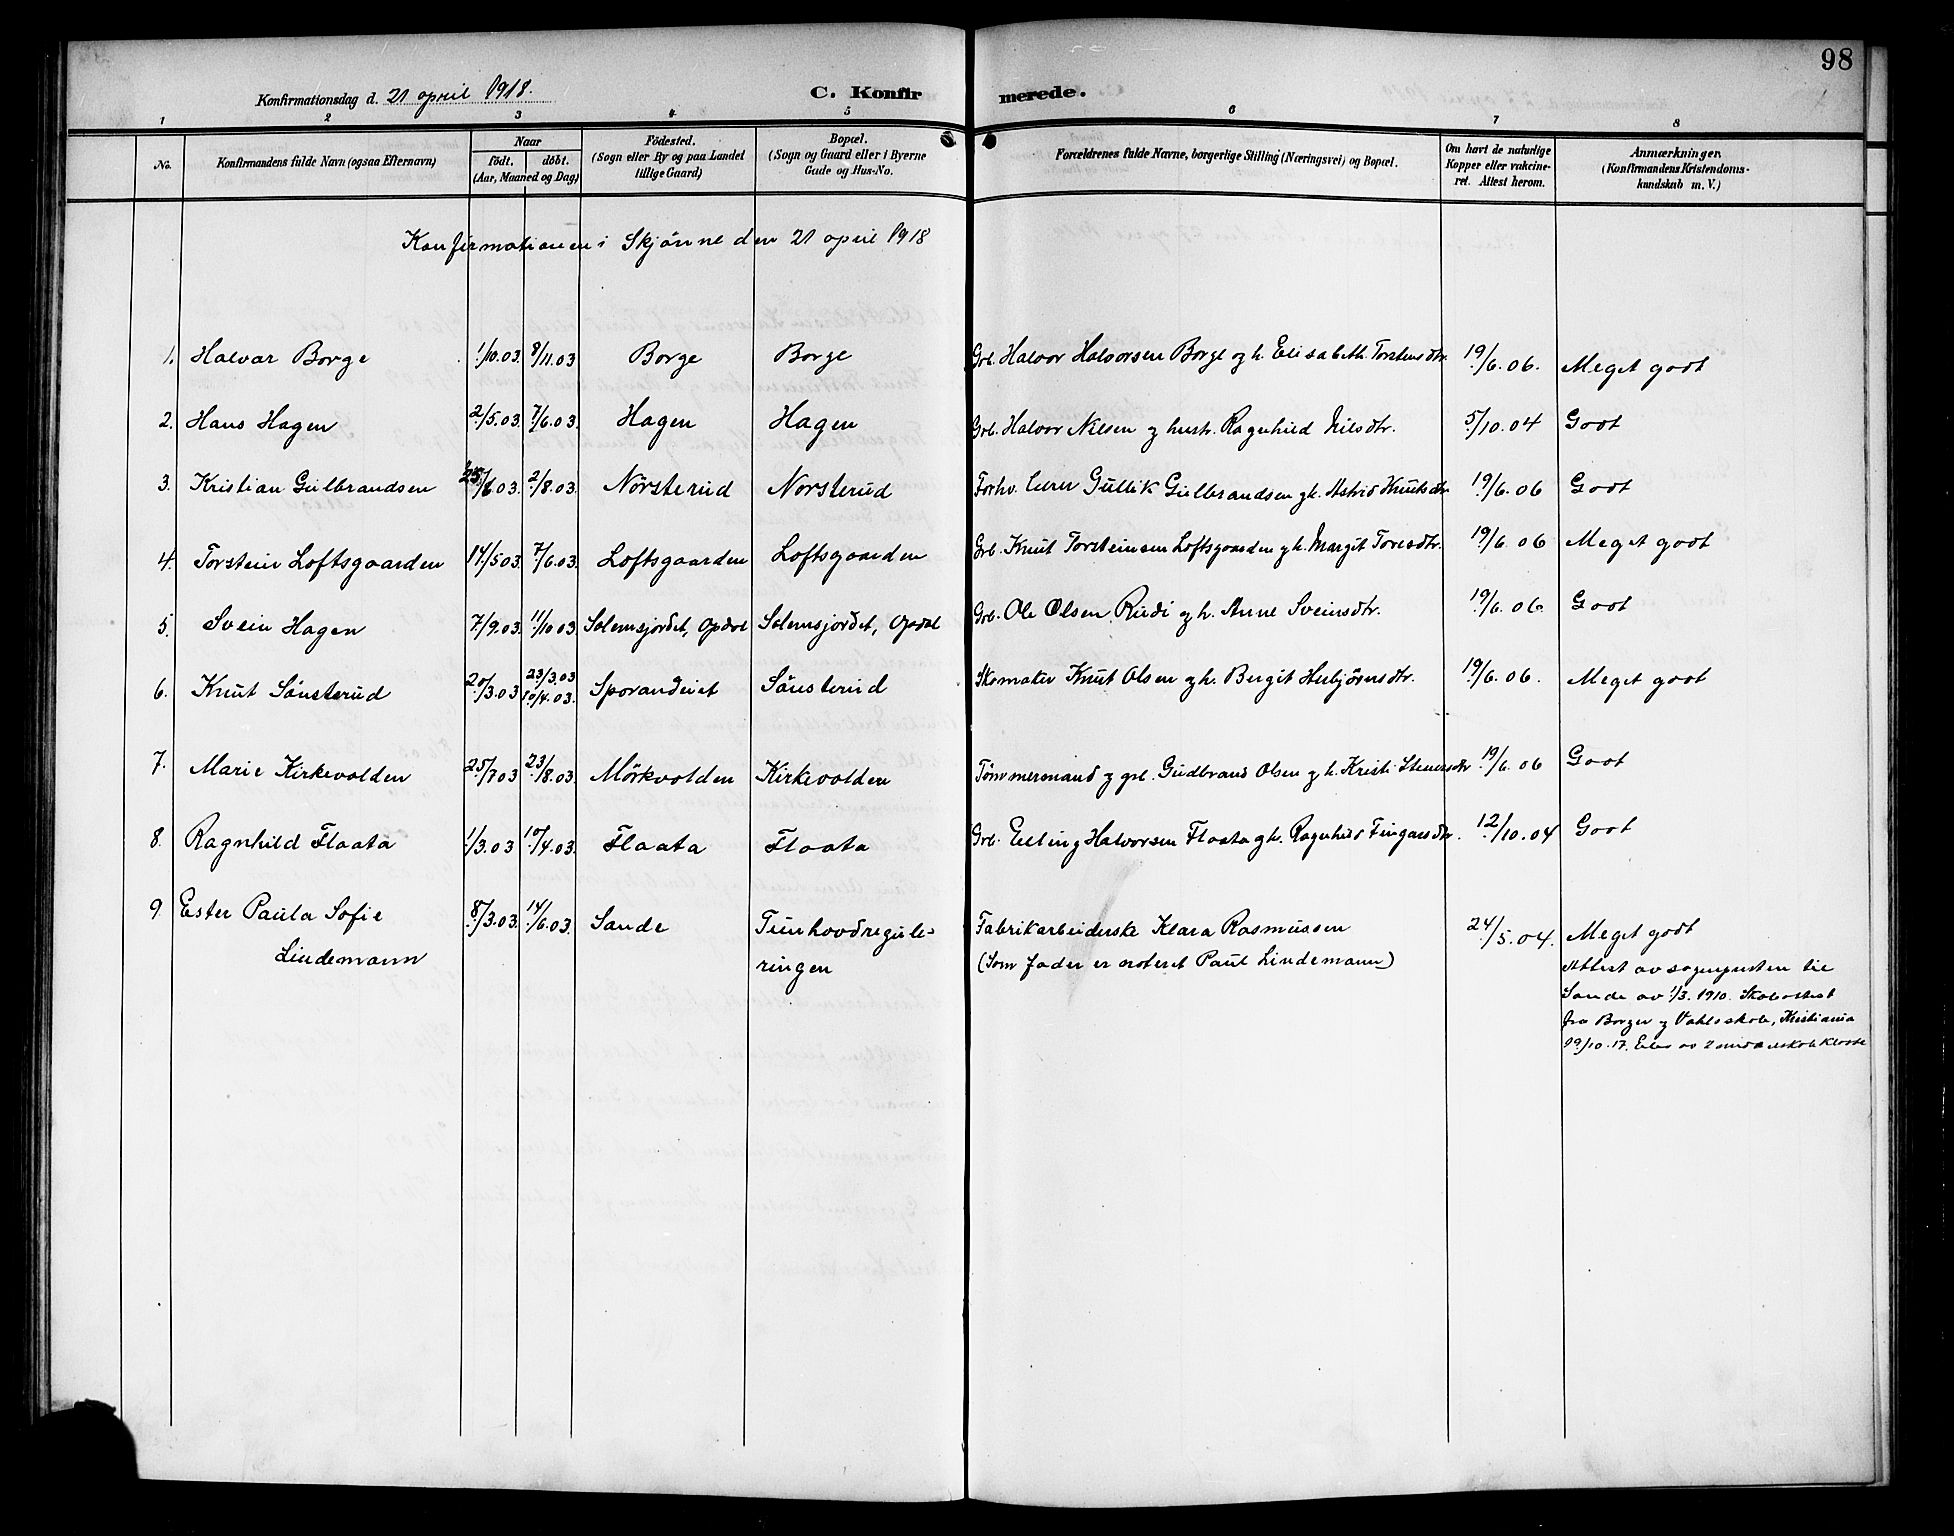 98
Konfirmationsdag d. 21 april 1918.
C. Konfirmerede.
1 2 3 4 5 6 7 8
No.
Konfirmandens fulde Navn (ogsaa Efternavn)
Naar
født. døbt.
(Aar, Maaned og Dag)
Fødested.
(Sogn eller By og paa Landet
tillige Gaard)
Bopæl.
(Sogn og Gaard eller i Byerne
Gade og Hus-No.
Forældrenes fulde Navne, borgerlige Stilling (Næringsvei) og Bopæl.
Om havt de naturlige
Kopper eller vakcine-
ret. Attest herom.
Anmærkninger.
(Konfirmandens Kristendoms-
kundskab m. V.)
Konfirmationen i Skjønne den 21 april 1918
1. Halvar Borge 1/10.03. 8/11.03 Borge Borge Grb. Halvor Halvorsen Borge og h. Elisabeth Torstensdtr. 19/6.06. Meget godt
2. Hans Hagen 2/5.03. 7/6.03. Hagen Hagen Grb. Halvor Nilsen og hustr. Ragnhild Nilsdtr. 5/10.04 Godt
3. Kristian Gulbrandsen 25/6.03. 2/8.03. Nørsterud Nørsterud Forhv. Gullik Gulbrandsen og h. Astrid Knutsdtr. 19/6.06 Godt
4. Torstein Loftsgaarden 14/5.03. 7/6.03. Loftsgaarden Loftsgaarden Grb. Knut Torsteinsen Loftsgaarden og h. Margit Toresdtr. 19/6.06 Meget godt
5. Svein Hagen 7/9.03. 11/10.03. Solemsjordet, Opdal Solemsjordet, Opdal Grb. Ole Olsen Rudi og h. Anne Sveinsdtr. 19/6.06. Godt
6. Knut Sønsterud 20/3.03 23/3.03 10/4.03. Sporaneiet Sønsterud Skomaker Knut Olsen og h. Bergit Herbjørnsdtr. 19/6.06. Meget godt
7. Marie Kirkevolden 25/7.03 23/8.03. Mørkvolden Kirkevolden Tømmermand og grb. Gudbrand Olsen og h. Kristi Steinersdtr 19/6.06 Godt
8. Ragnhild Flaata 1/3.03 10/4.03. Flaata Flaata Grb. Elling Halvorsen Flaata og h. Ragnhild Fingarsdtr. 12/10.04 Godt
9. Ester Paula Sofie 8/3.03. 14/6.03. Sande Tunhovdregule- Fabrikarbeiderske Klara Rasmussen 24/5.04. Meget godt
Lindemann ringen (Som fader er noteret Paul Lindemann)
Attest av sogneprsten til
Sande av 1/3.1910. Skoleattest
fra Borger og Vahls skole, Kristiania
19/10.17. Elev av 2 middelskoleklasse